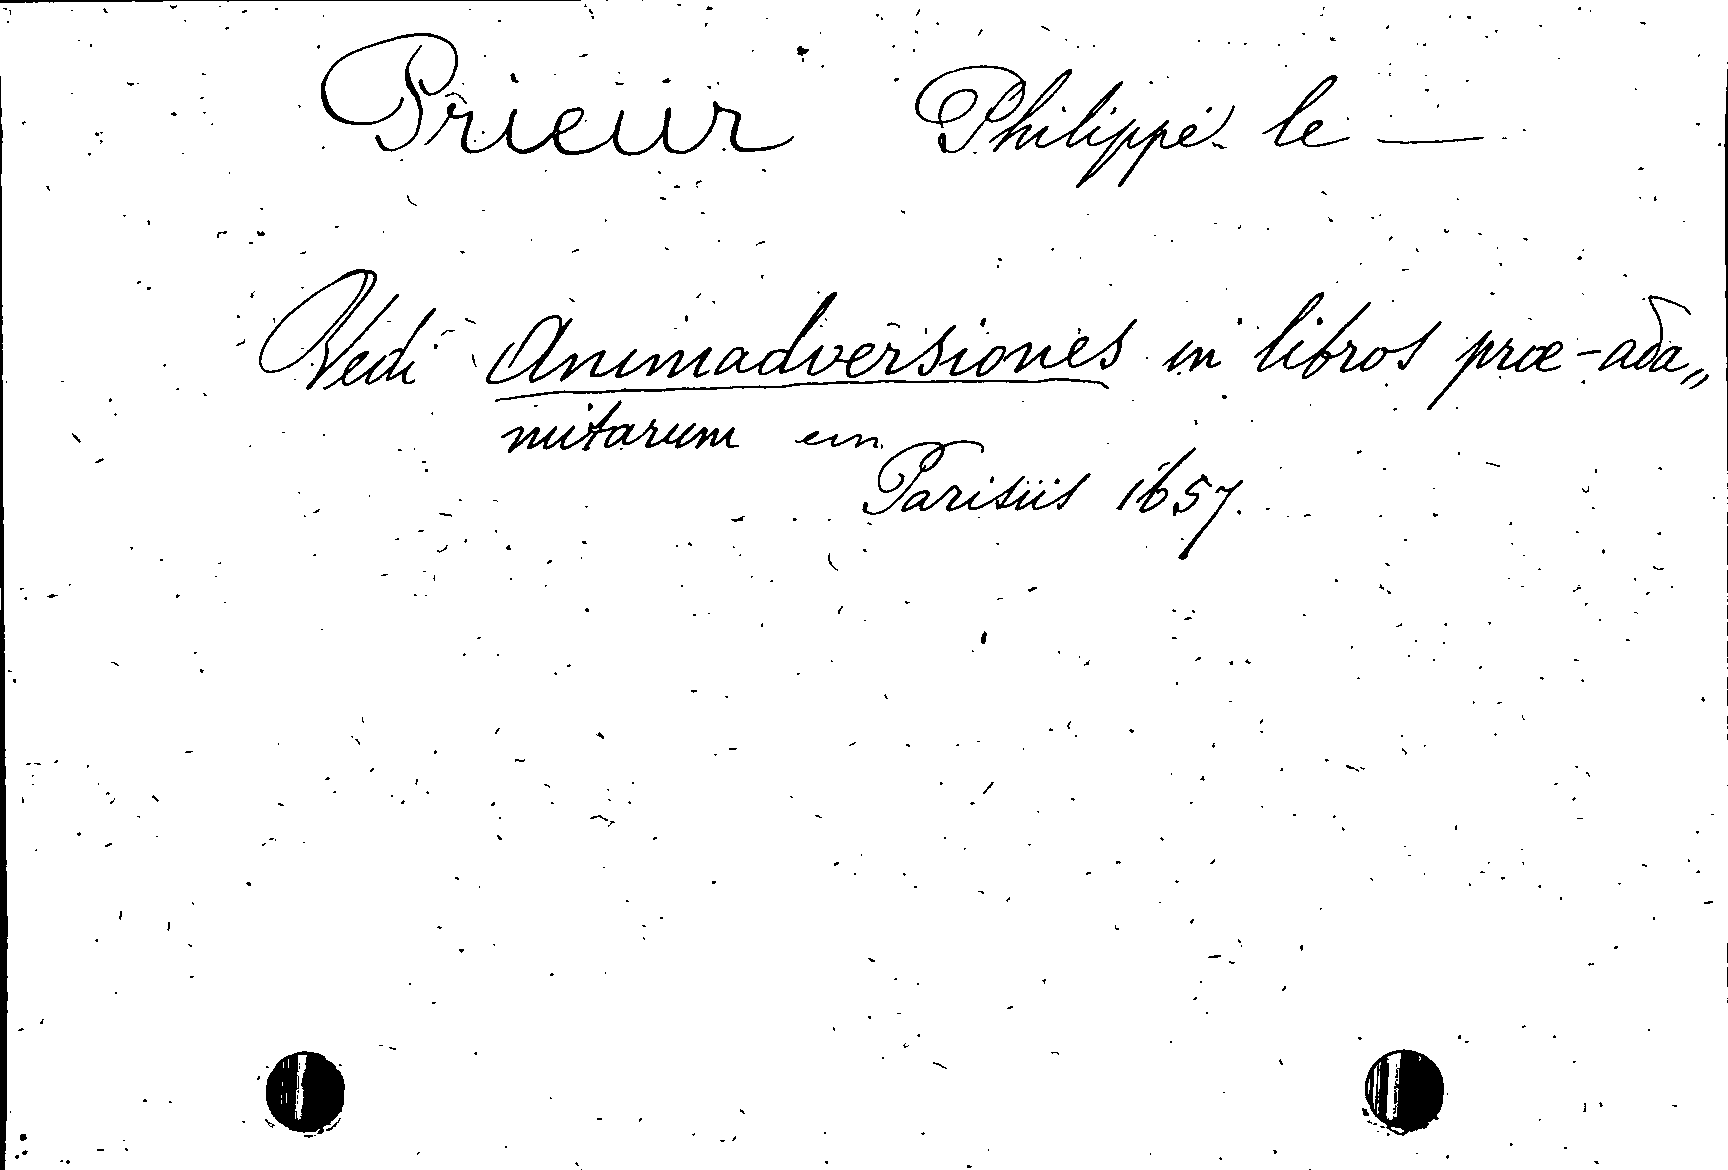 Prieur Philippe le —
Vedi Animadversiones in libros præ-ada„
mitarum
Parisiis 1657.